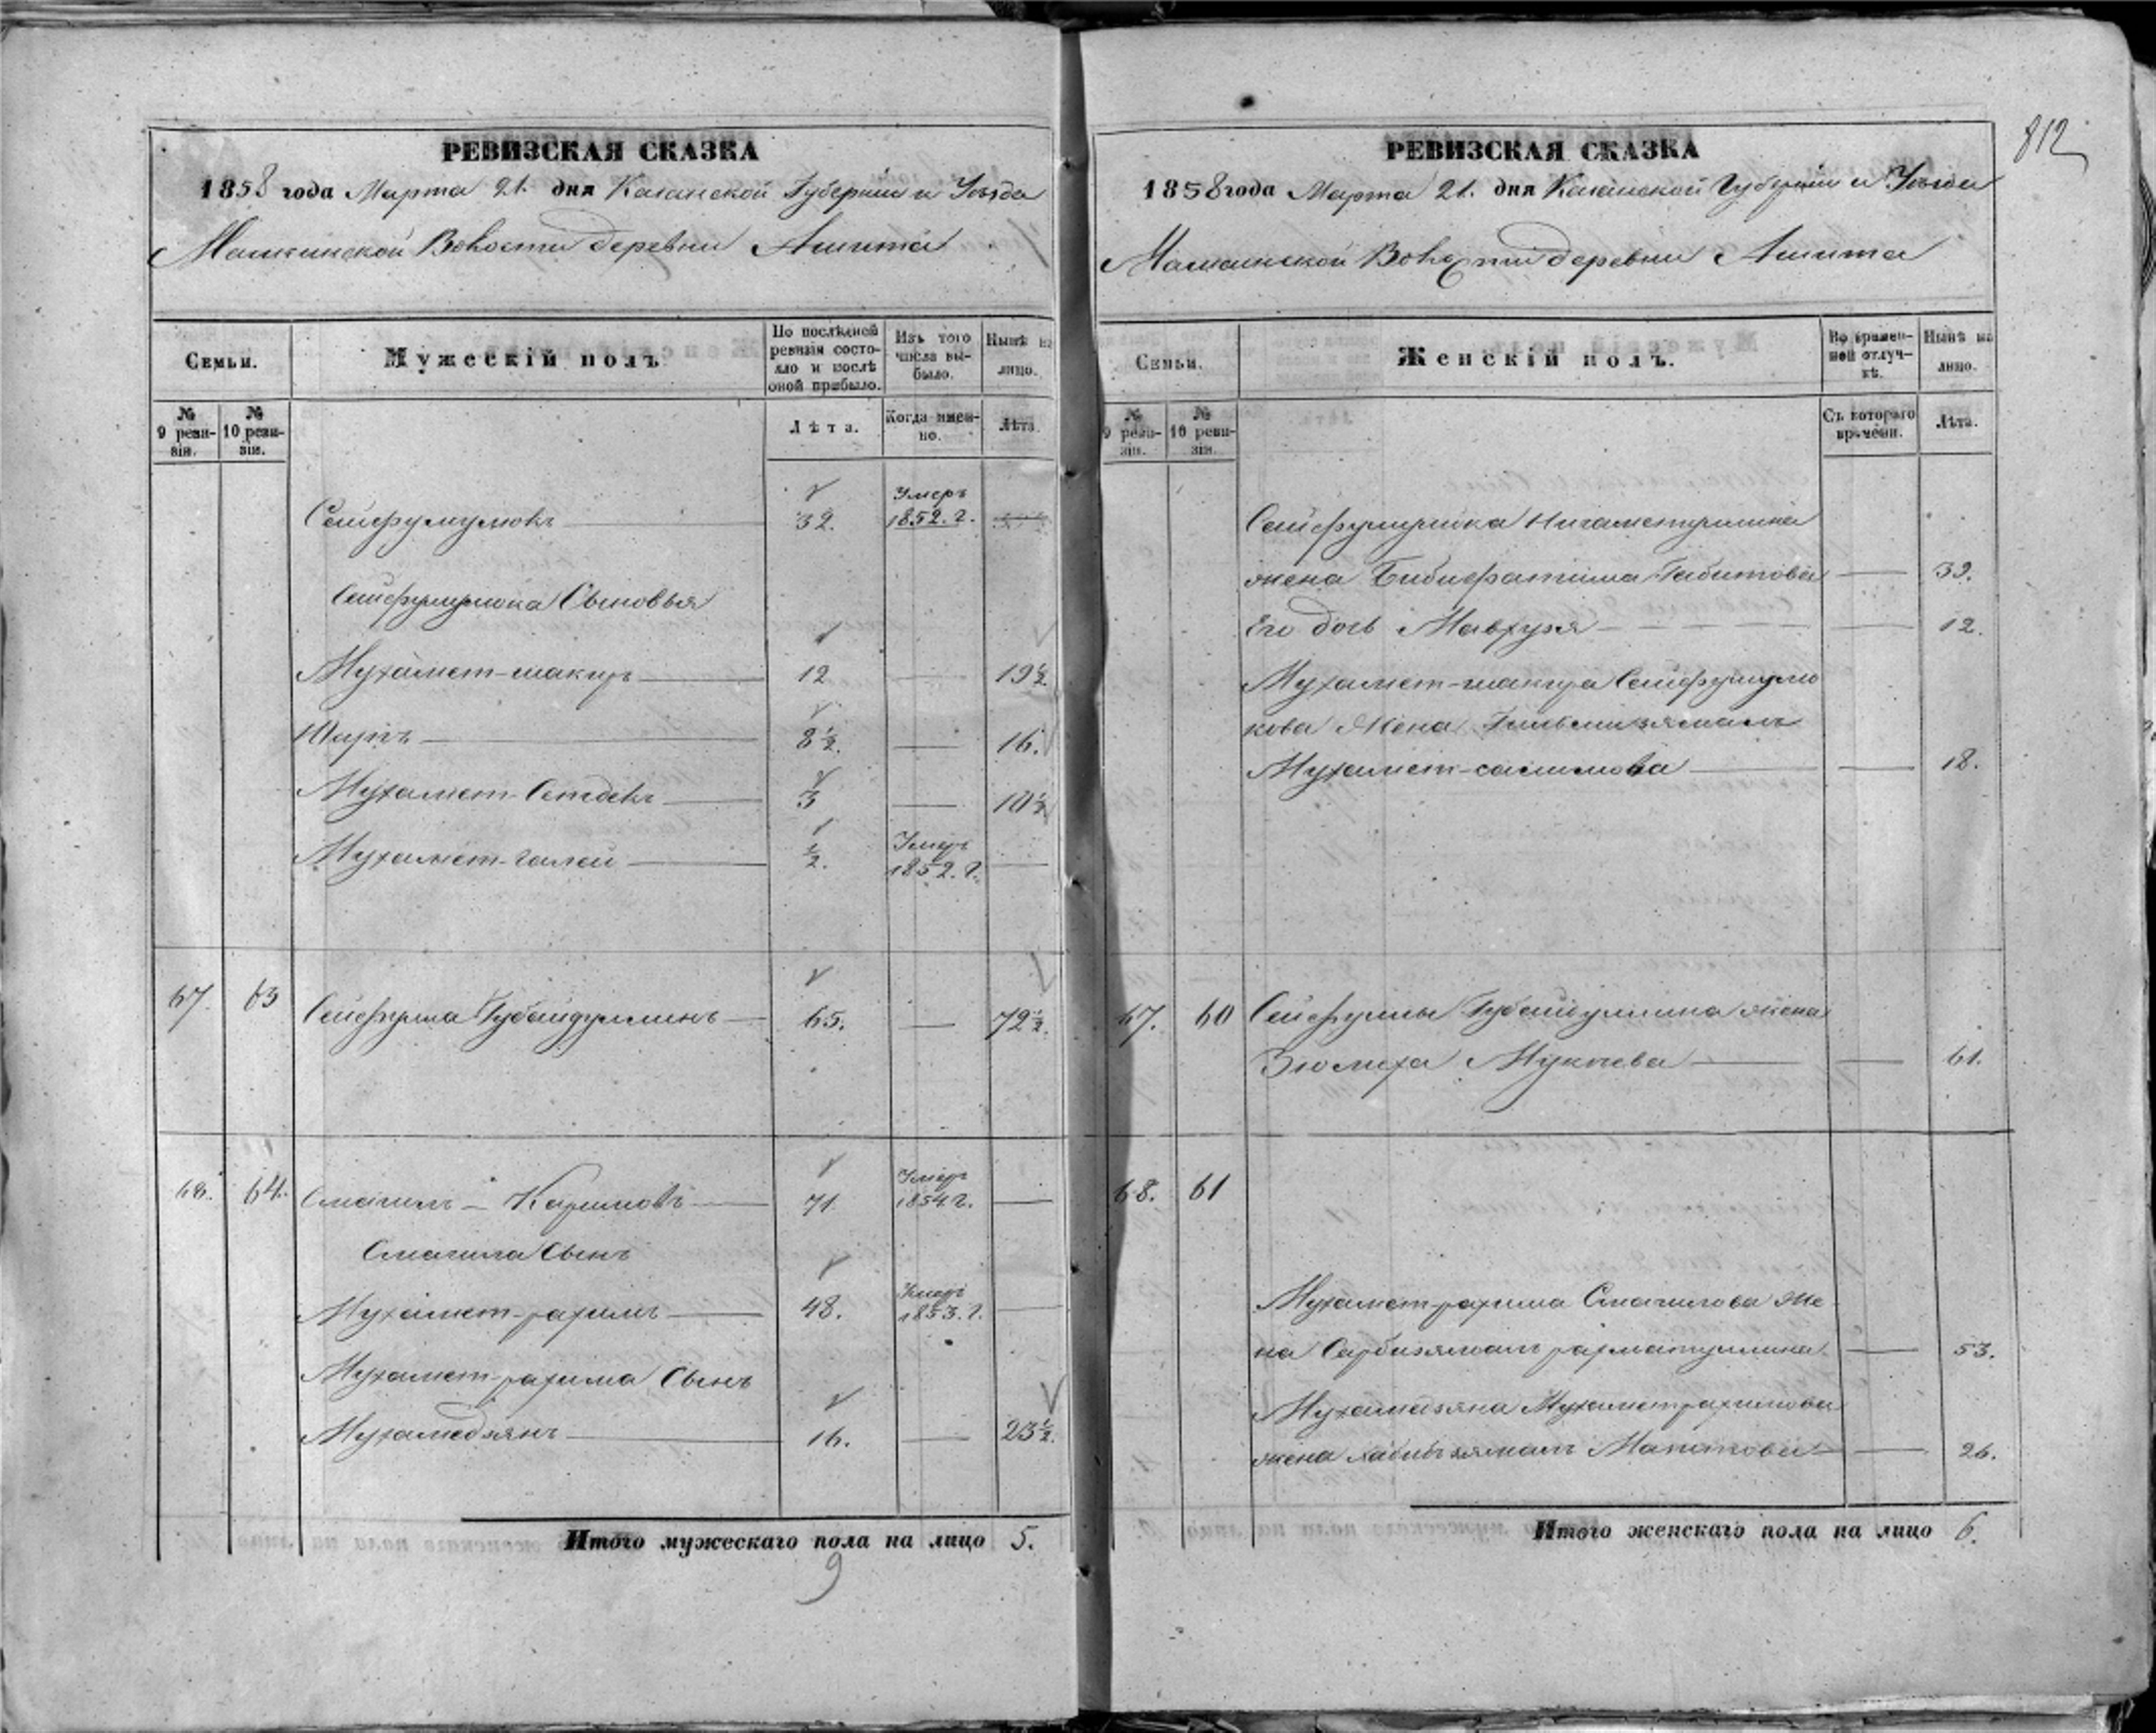 РЕВИЗСКАЯ СКАЗКА
1858 года Марта 21. дня Казанской Губернии и Уѣзда
Мамсинской Волости деревни Ашита
Семьи.
Мужескій полъ
По послѣдней ревизіи состояло и послѣ оной прибыло.
Изъ того числа выбыло.
Нынѣ на лицо.
№ 9 ревизіи.
№ 10 ревизіи.
Лѣта.
Когда именно.
Лѣта.
Сейфулмулюкъ 32. Умеръ 1852. г.
Сейфулмулюка Сыновья
Мухамет-шакиръ 12 19½
8½. 16.
Мухамет- 3 10½
Мухамет-галей ½. Умеръ 1852. г.
67. 63 Сейфулла Губайдуллинъ 65. 72½.
68. 64. Смагилъ Каримовъ 71 Умеръ 1854 г.
Смагила Сынъ
Мухамет-рахимъ 48. Умеръ 1853. г.
Мухамет-рахима Сынъ
Мухамедзянъ 16. 23½.
Итого мужескаго пола на лицо 5.
9
812
РЕВИЗСКАЯ СКАЗКА
1858 года Марта 21. дня Казанской Губерніи и Уѣзда
Мамсинской Волости деревни Ашита
Семьи.
Женскій полъ.
Во временной отлучкѣ.
Нынѣ на лицо.
№ 9 ревизіи.
№ 10 ревизіи.
Съ котораго времени.
Лѣта.
Сейфулмулюка Нигаметуллина
жена Бибифатима Габитова 39.
Его дочь Мавруза 12.
Мухамет-шакира Сейфулмулю
кова Жена
Мухамет-салимова 18.
67. 60 Сейфуллы Губайдуллина жена
Зюлиха 61.
68. 61
Мухамет рахима Смагилова же-
на Сарбизямалъ рахматуллина 53.
Мухамедзяна Мухаметрахимова
жена Хабибзямалъ 26.
Итого женскаго пола на лицо 6.